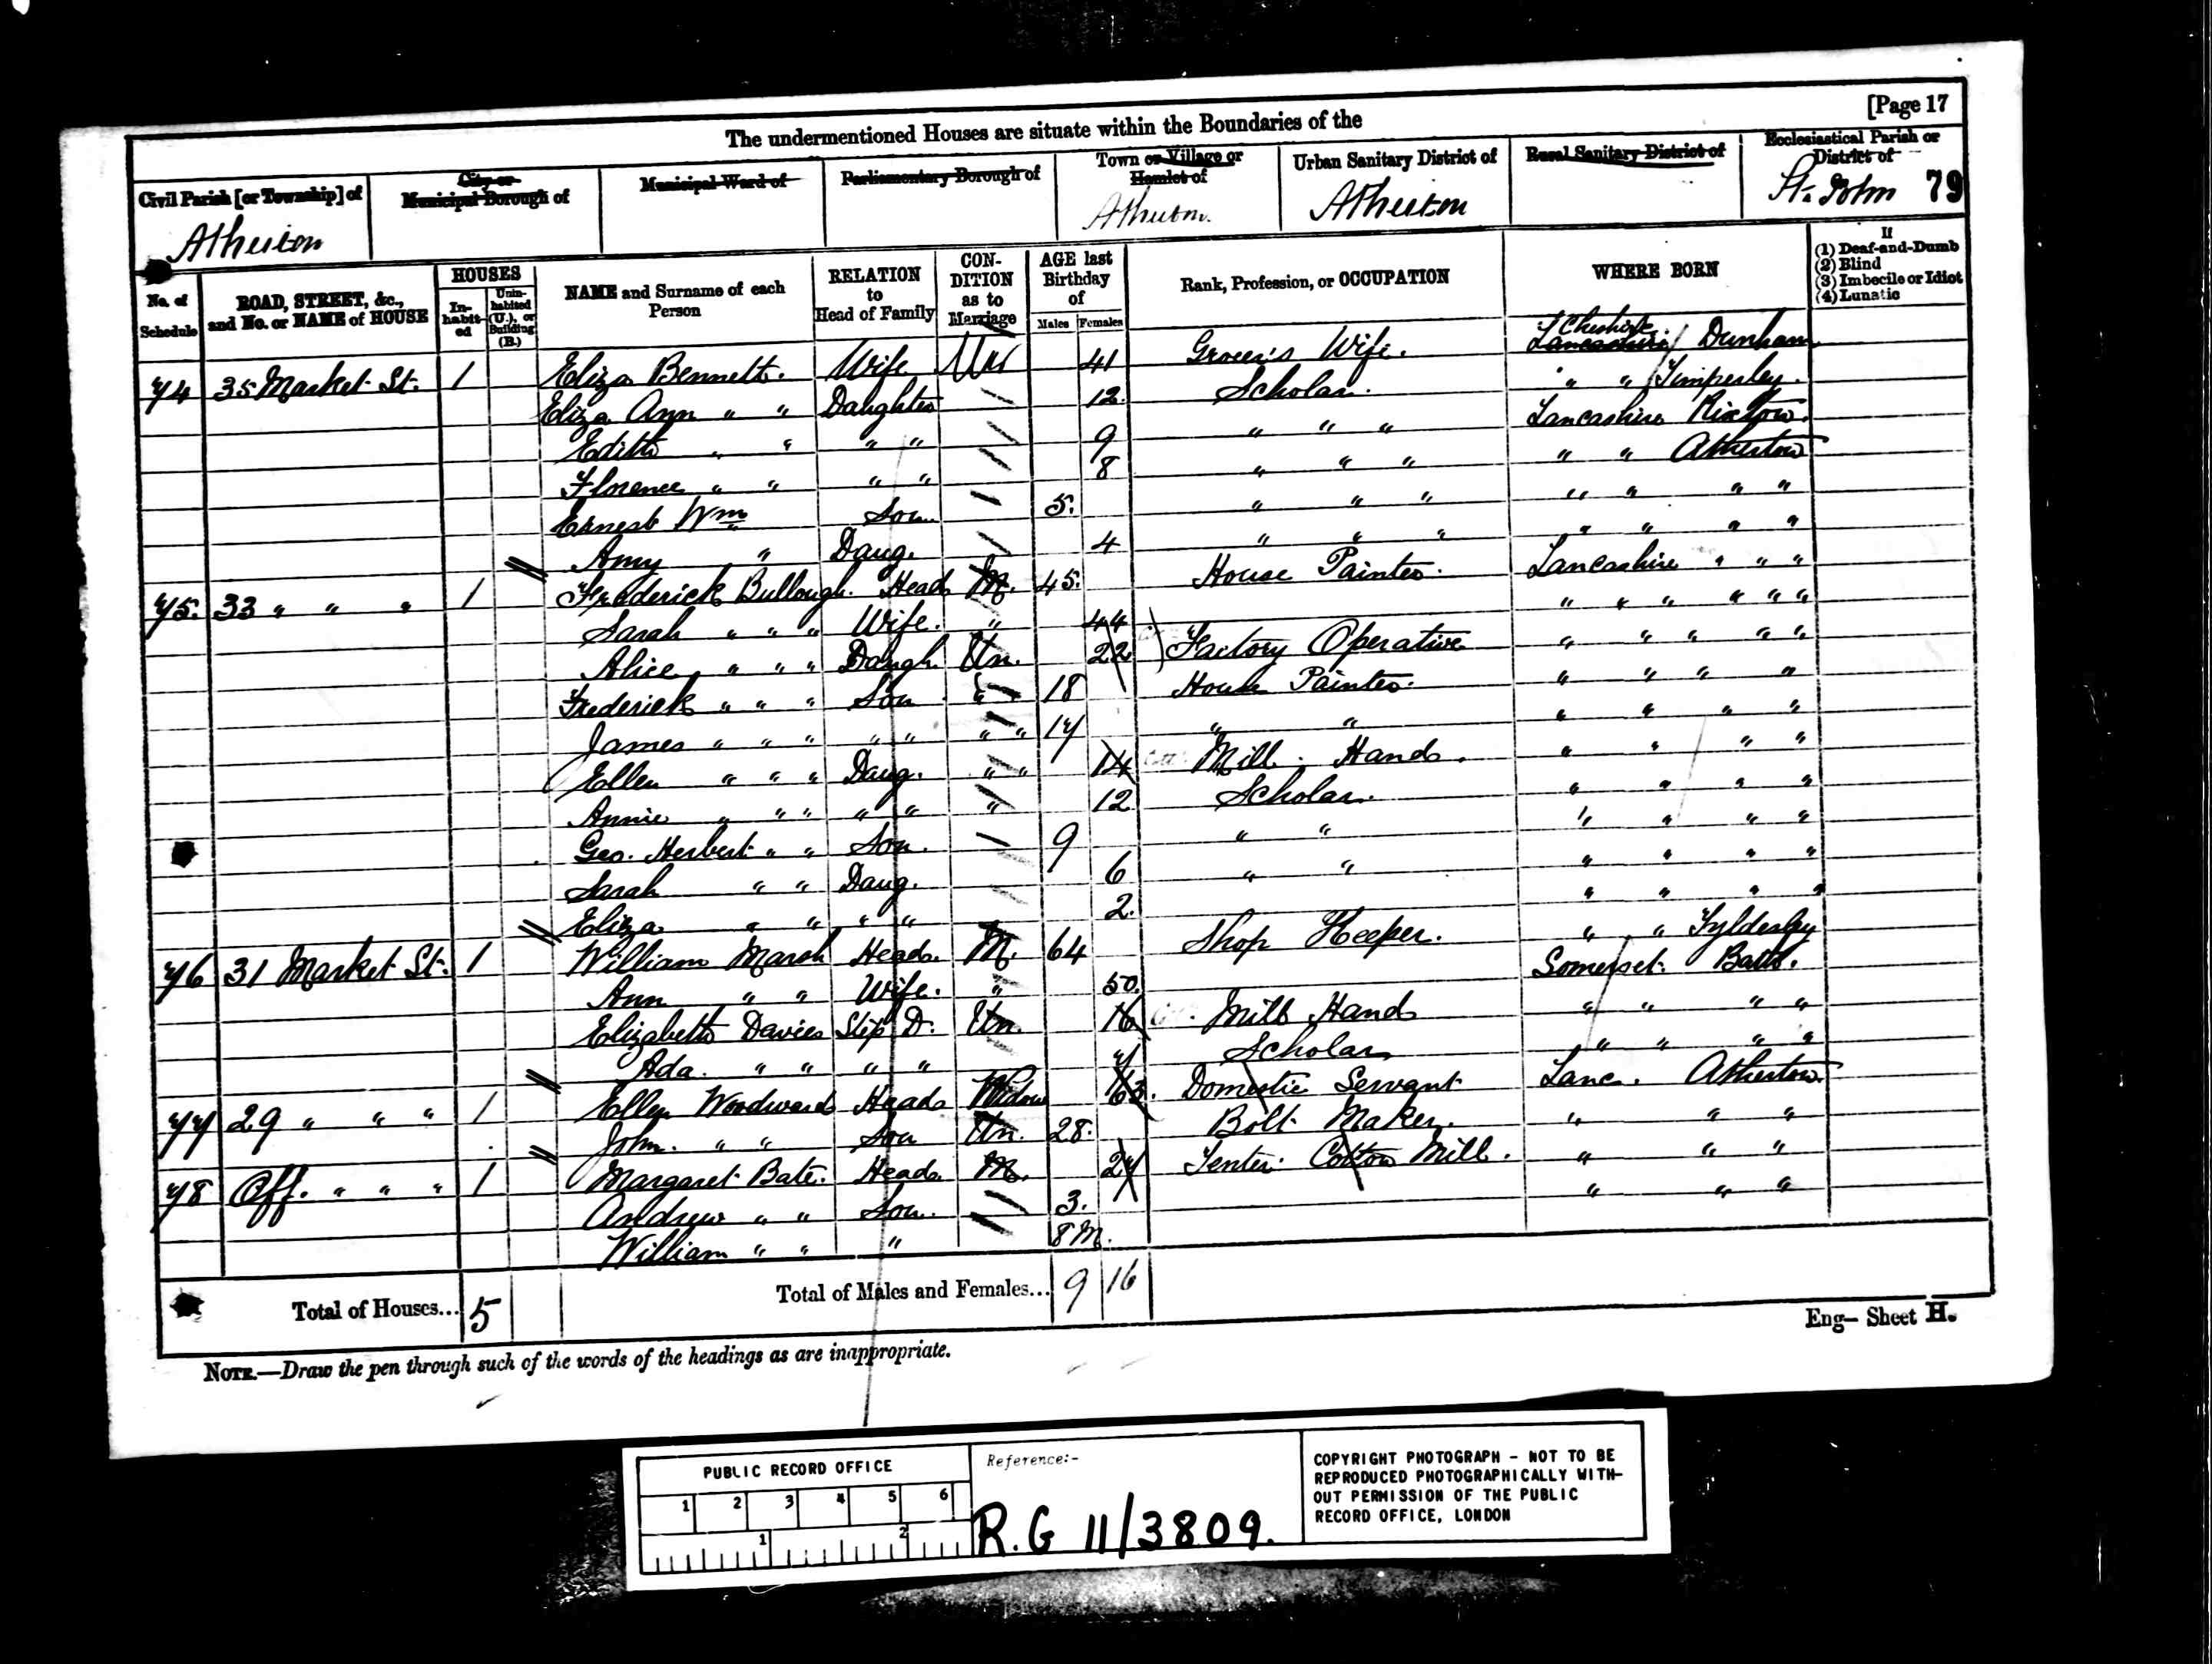 [Page 17
The undermentioned Houses are situate within the Boundaries of the
Civil Parish [or Township] of
City or Municipal Borough of
Municipal Ward of
Parliamentary Borough of
Town or Village or Hamlet of
Urban Sanitary District of
Rural Sanitary District of
Ecclesiastical Parish or District of
Atherton
Atherton.
Atherton
St. John 79
No. of Schedule
ROAD, STREET, &c., and No. or NAME of HOUSE
HOUSES
In-habit-ed
Unin-habited (U.), or Building (B.)
NAME and Surname of each Person
RELATION to Head of Family
CON-DITION as to Marriage
AGE last Birthday of
Males Females
Rank, Profession, or OCCUPATION
WHERE BORN
If
(1) Deaf-and-Dumb
(2) Blind
(3) Imbecile or Idiot
(4) Lunatic
74 35 Market St. 1 Eliza Bennett. Wife 41 Grocer's Wife. Lancashire Cheshire Dunham
Eliza Ann " " Daughter 12 Scholar. " " Timperley.
Edith " " " " 9 " " " Lancashire Rixton.
Florence " " " " 8 " " " " " Atherton
Ernest Wm " Son 5. " " " " " " "
Amy " Daug. 4 " " " " " " "
75. 33 " " " 1 Frederick Bullough. Head M. 45. House Painter. Lancashire " " "
Sarah " " " Wife. " 44 " " " " " "
Alice " " " Daugh Un. 22 Factory Operative " " " " "
Frederick " " " Son " 18 House Painter. " " " "
James " " " " " " " 17 " " " " " "
Ellen " " " Daug. " " 14 Mill Hand. " " " "
Annie " " " " " " 12 Scholar. " " " "
Geo. Herbert " " Son. 9 " " " " " "
Sarah " " Daug. 6 " " " " " "
Eliza " " " " 2. " " " "
76 31 Market St. 1 William Marsh Head. M. 64 Shop Keeper. " " Tyldesley
Ann " " Wife. " 50. Somerset. Bath.
Elizabeth Davies Step D. Un. 16 Mill Hand " " " "
Ada. " " " " 7 Scholar " " " "
77 29 " " " 1 Ellen Woodward Head Widow 63. Domestic Servant Lanc. Atherton.
John. " " Son Un. 28. Bolt Maker. " " "
78 Off. " " " 1 Margaret Bate. Head. M. 27 Tenter Cotton Mill. " " "
Andrew " " Son. 3. " " "
William " " " 8 M.
Total of Houses... 5 Total of Males and Females... 9 16
Eng— Sheet H.
NOTE.—Draw the pen through such of the words of the headings as are inappropriate.
PUBLIC RECORD OFFICE
1 2 3 4 5 6
1 2
Reference:-
R.G 11/3809.
COPYRIGHT PHOTOGRAPH - NOT TO BE
REPRODUCED PHOTOGRAPHICALLY WITH-
OUT PERMISSION OF THE PUBLIC
RECORD OFFICE, LONDON